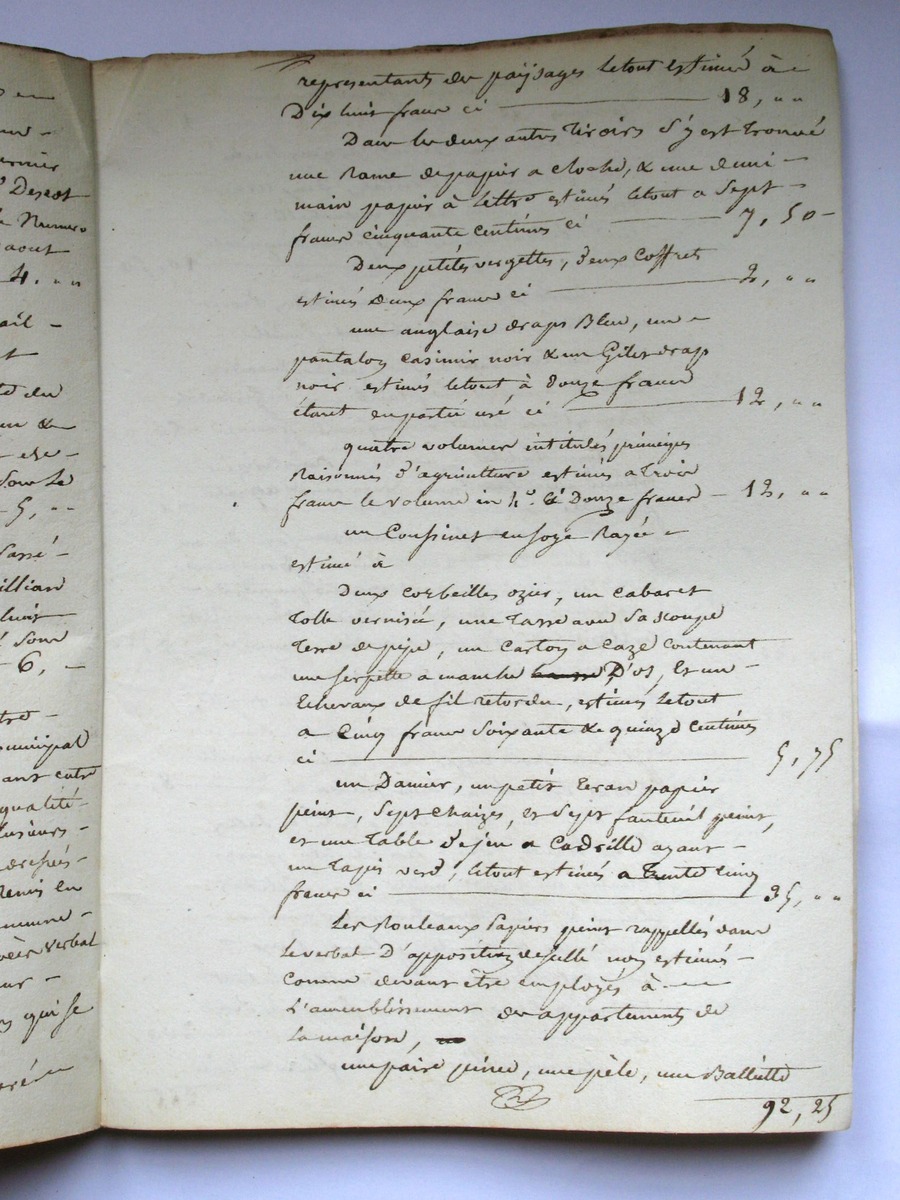 representants des païsages le tout estimé à
Dix huit francs ci 18, " "
Dans les deux autres tiroirs s'y est trouvé
une Rame de papier a cloche, & une demi
main papier à lettre estimés le tout a Sept
francs cinquante centimes ci 7, 50
Deux petites vergettes, deux coffrets
estimés deux francs ci 2, " "
une anglaise draps Bleu, un
pantalon casimir noir & un Gilet drap
noir estimés le tout à douze francs
étant en partie usé ci 12, " "
quatre volumes intitulés principes
Raisonnés d'agriculture estimés a trois
francs le volume in 4°. Ci Douze francs 12, " "
un Coussinet en soye Rayée
estimé à
Deux corbeilles ozier, un cabaret
tolle vernisé, une tasse avec sa soucoupe
terre de pipe, un carton a caze contenant
une serpette a manche D'os, Et un
Echevaux de fil retordu, estimés le tout
a Cinq francs soixante & quinze centimes
ci 5, 75
un Damier, un petit Ecran papier
peint, sept chaizes, et sept fauteuil peint,
et une table de jeu a Cadrille ayant
un tapis verd, le tout estimés a trente cinq
francs ci 35, " "
Les Rouleaux papiers peint rappellés dans
le verbal D'apposition de scellé non estimés
comme devant être employés à
L'ameublissement des appartements de
la maison,
une paire pince, une pèle, une Ballette
92, 25
4. " "
Numero
aout
5, "
6,
entre
qualité
verbal
qui se